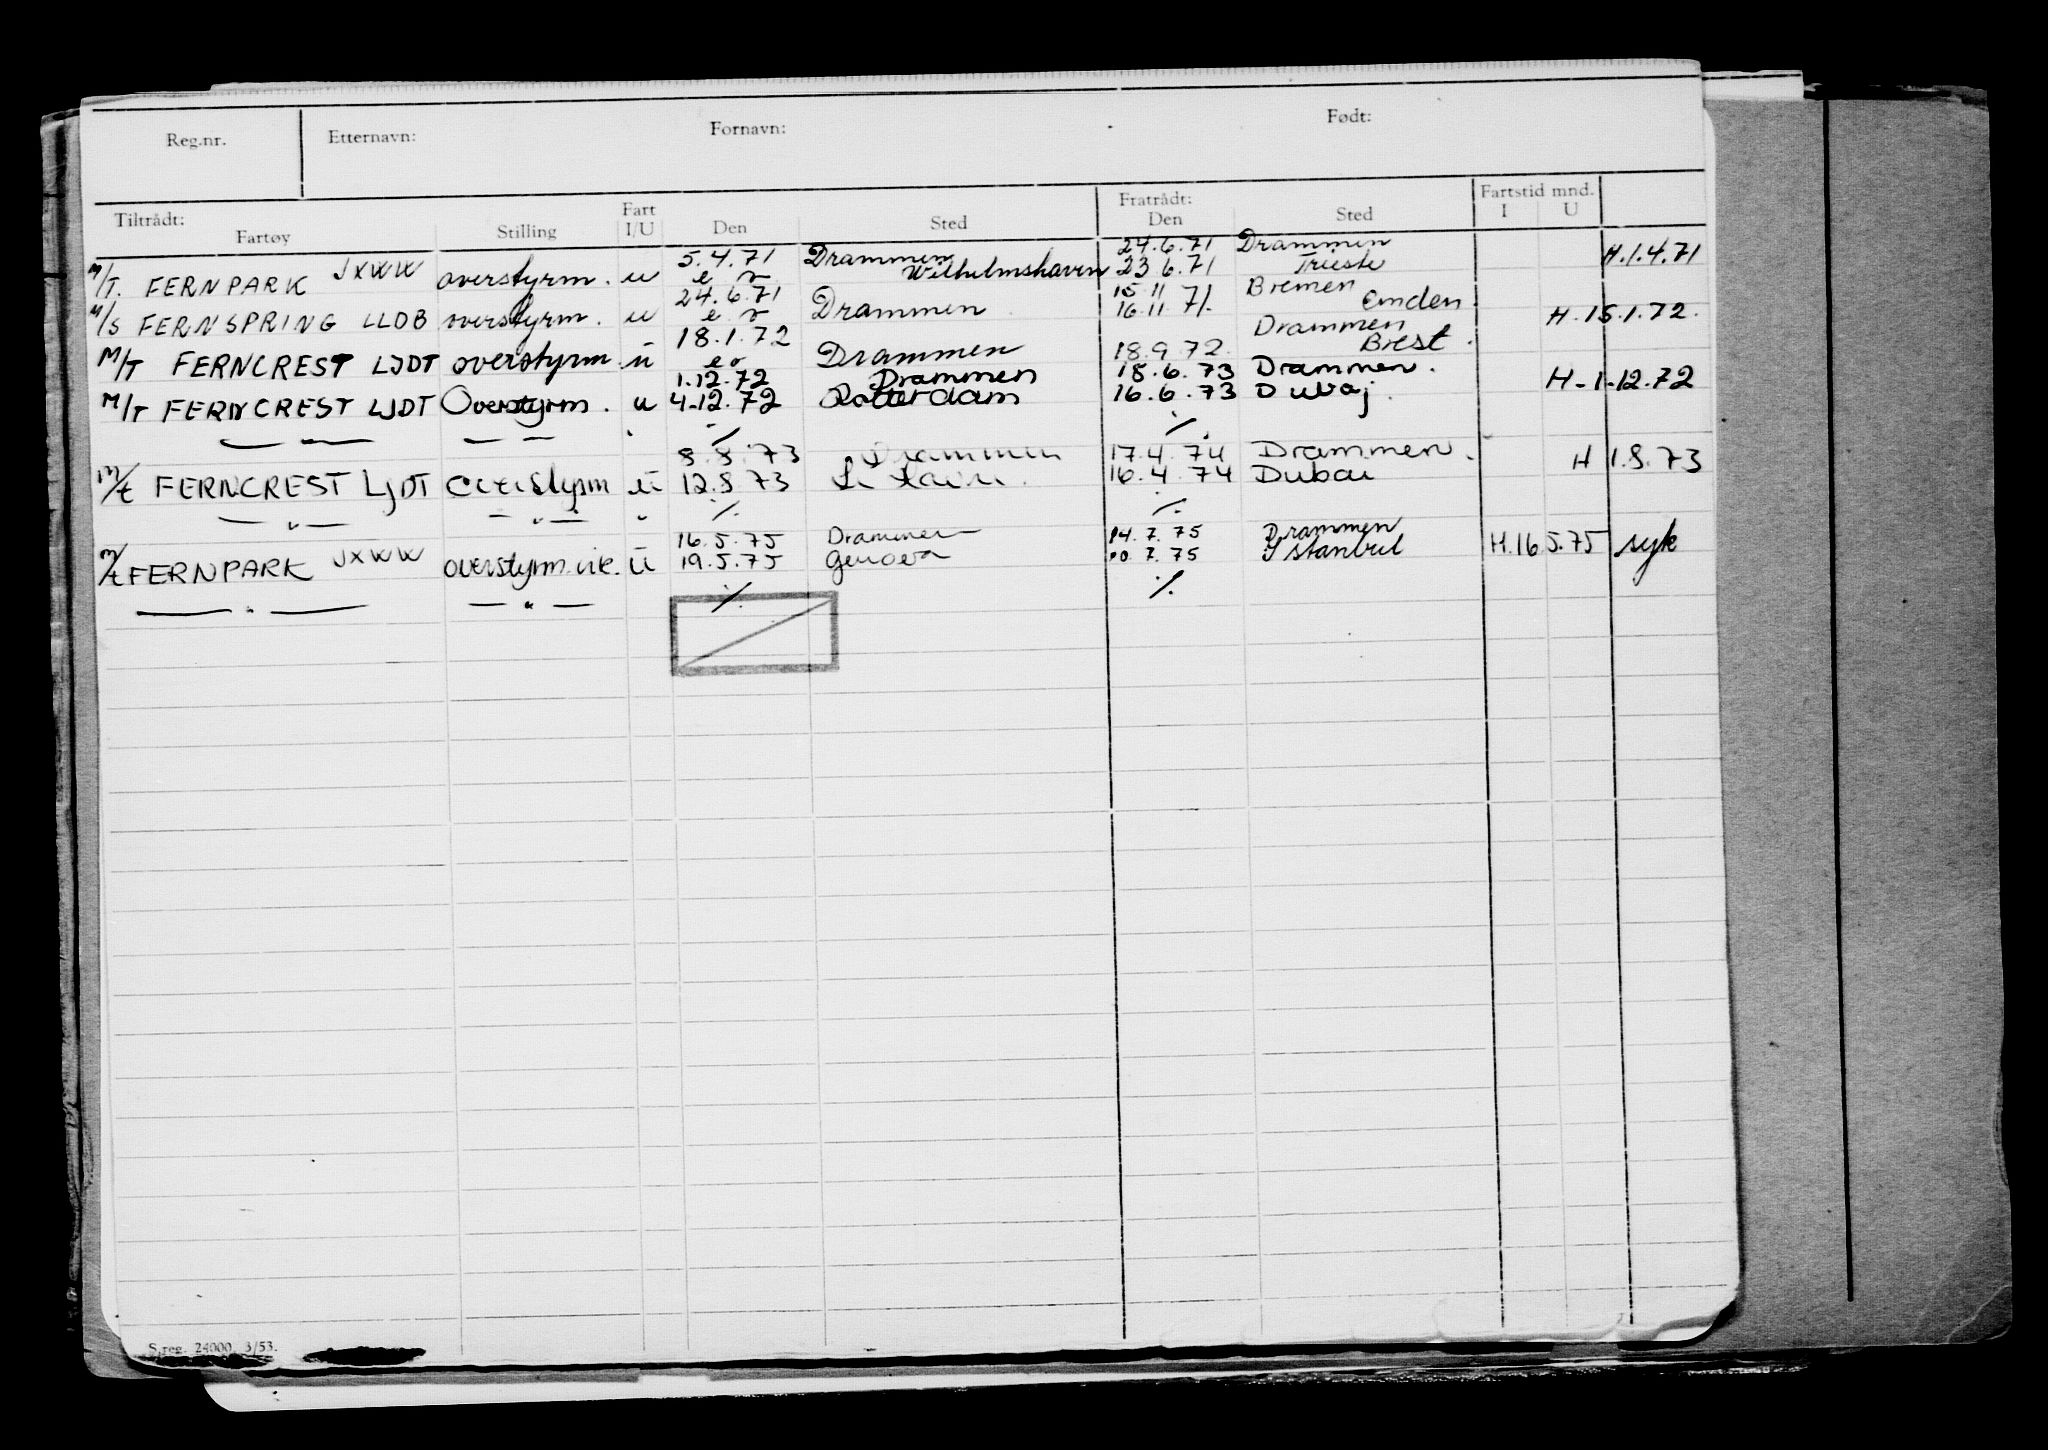 Reg.nr. Etternavn: Fornavn: Født:
Tiltrådt: Fratrådt: Fartstid mnd.
Fartøy Stilling Fart I/U Den Sted Den Sted I U
5.4.71 Drammen 24.6.71 Drammen
M/T. FERNPARK JXWW overstyrm. u Wilhelmshaven 23 6.71 Trieste H.1.4.71
24.6.71 15 11 71. Bremen
M/S FERNSPRING LLDB overstyrm. u Drammen 16.11 Emden
18.1.72 Drammen H.15.1.72.
M/T FERNCREST LJDT overstyrm. u Drammen 18.9.72. Brest.
1.12.72 Drammen 18.6.73 Drammen.
M/T FERNCREST LJDT Overstyrm. u 4.12.72 Rotterdam 16.6.73 Dubaj. H-1-12.72
— " — — — " ./. ./.
8.8.73 Drammen 17.4.74 Drammen.
M/t FERNCREST LJDT u 12.8 73 16.4.74 Dubai H 1.8.73
— " — — " — " ./. ./.
16.5.75 Drammen 14.7.75 Drammen
M/t FERNPARK JXWW overstyrm. vik. u 19.5.75 Genova 7.75 Istanbul H.16 5.75 syk
— " — — " — ./. ./.
S.reg. 24000 3/53.